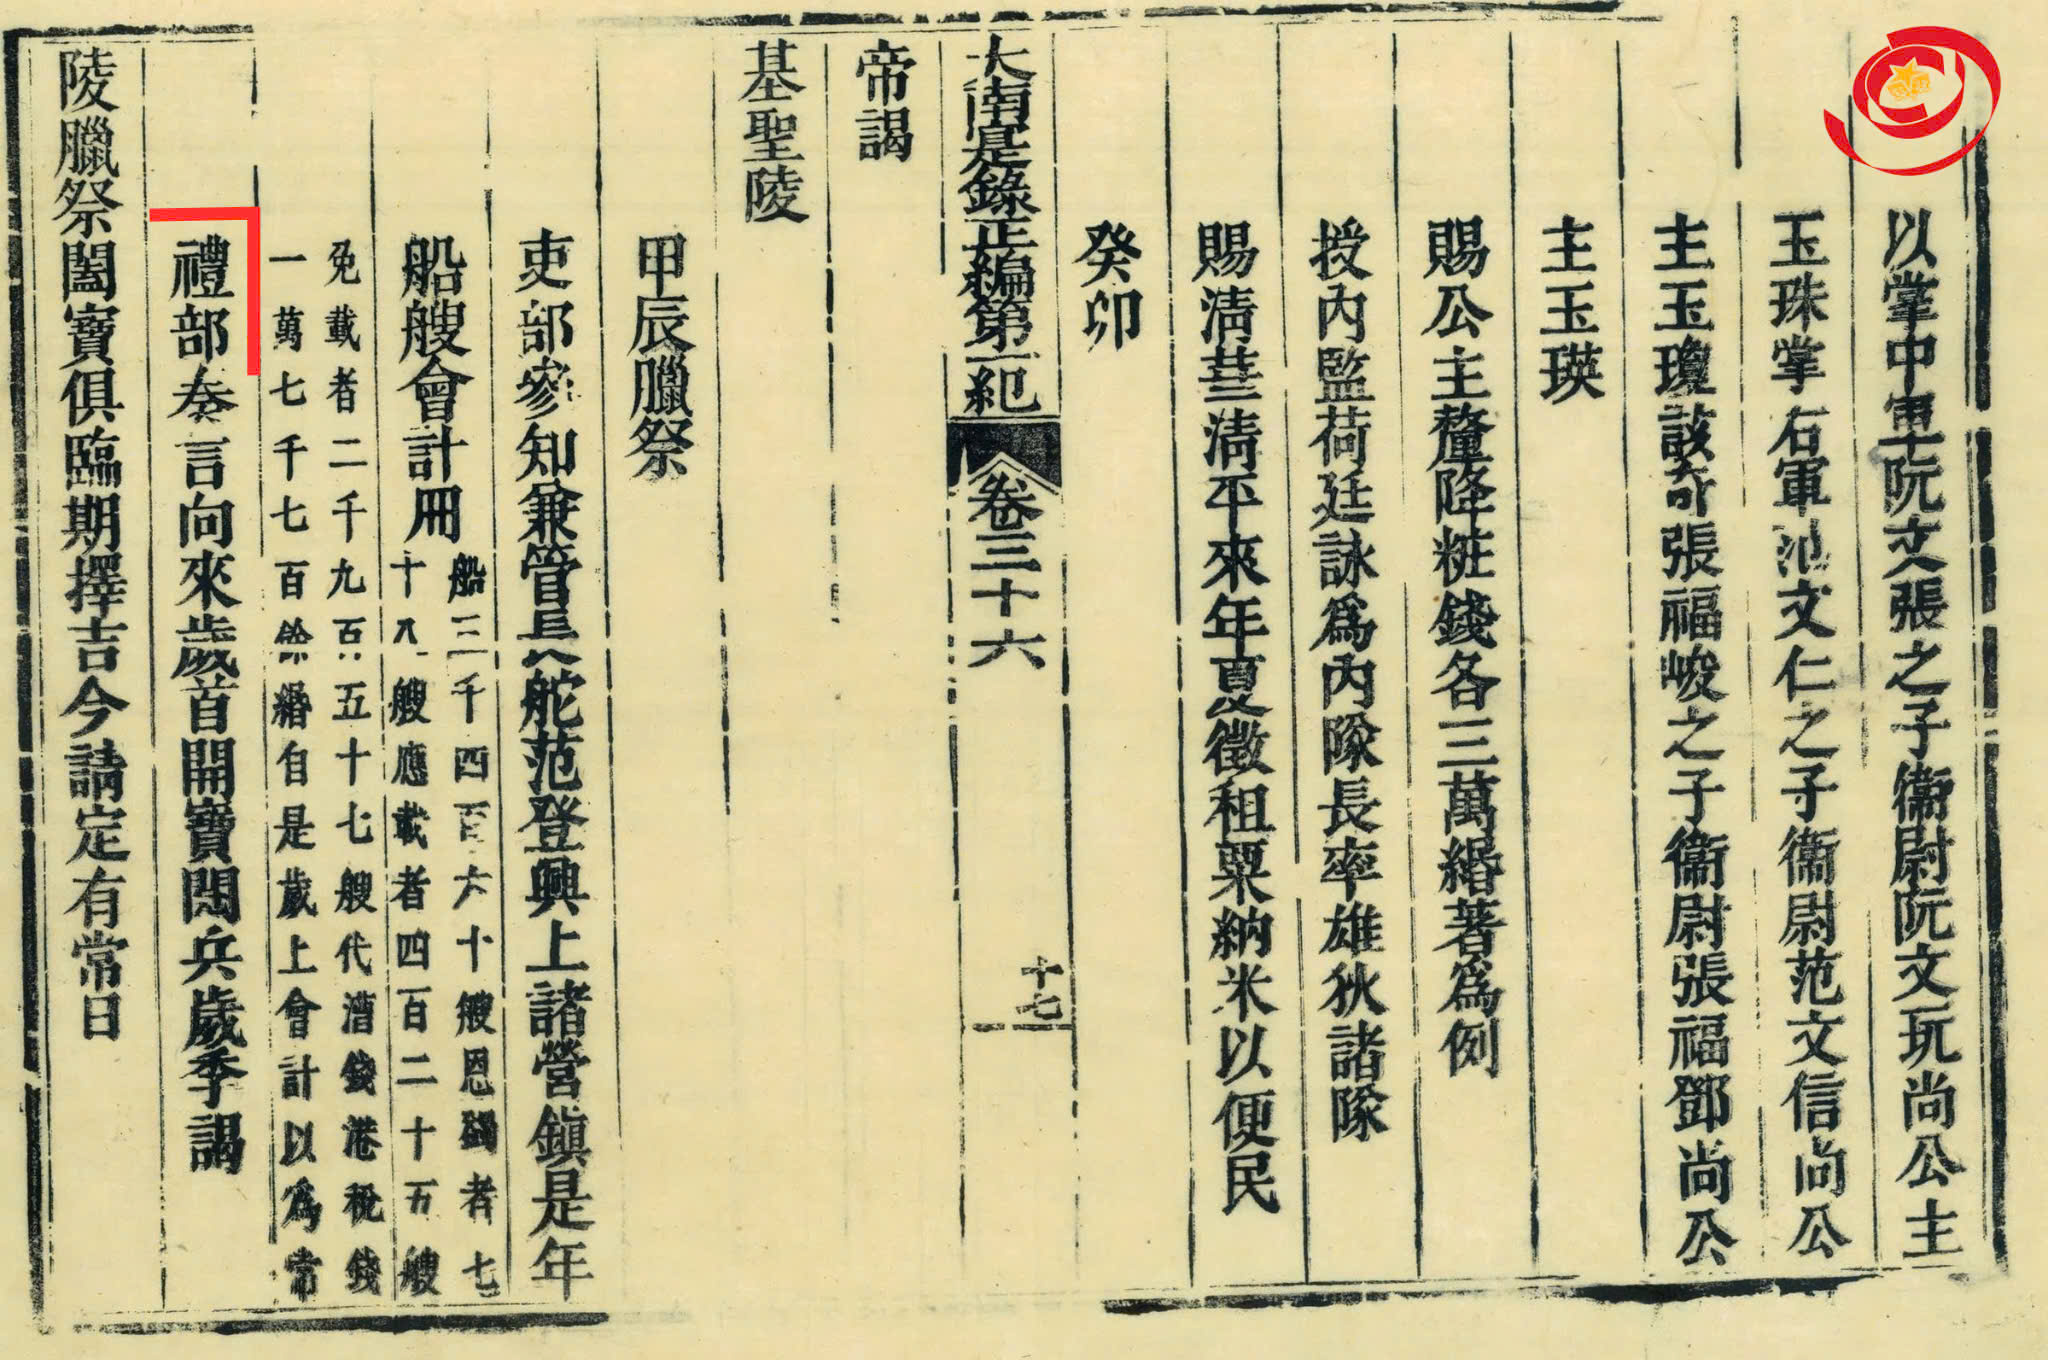 以掌中軍阮文張之子衞尉阮文玩尚公主
玉珠掌右軍范文仁之子衞尉范文信尚公
主玉瓊該奇張福峻之子衞尉張福鄧尚公
主玉瑛
賜公主釐降粧錢各三萬緡著爲例
授内監荷廷詠爲内隊長率雄狄諸隊
賜清葩清平來年夏徵租粟納米以便民
癸卯
大南寔錄正編第一紀 卷三十六 十七
帝謁
基聖陵
甲辰臘祭
吏部參知兼管長舵范登興上諸營鎮是年
船艘會計冊
船三千四百六十艘恩蠲者七
十八艘應載者四百二十五艘
免載者二千九百五十七艘代漕錢港稅錢
一萬七千七百餘緡自是歲上會計以爲常
禮部奏言向來歲首開寶閱兵歲季謁
陵臘祭闔寶俱臨期擇吉今請定有常日